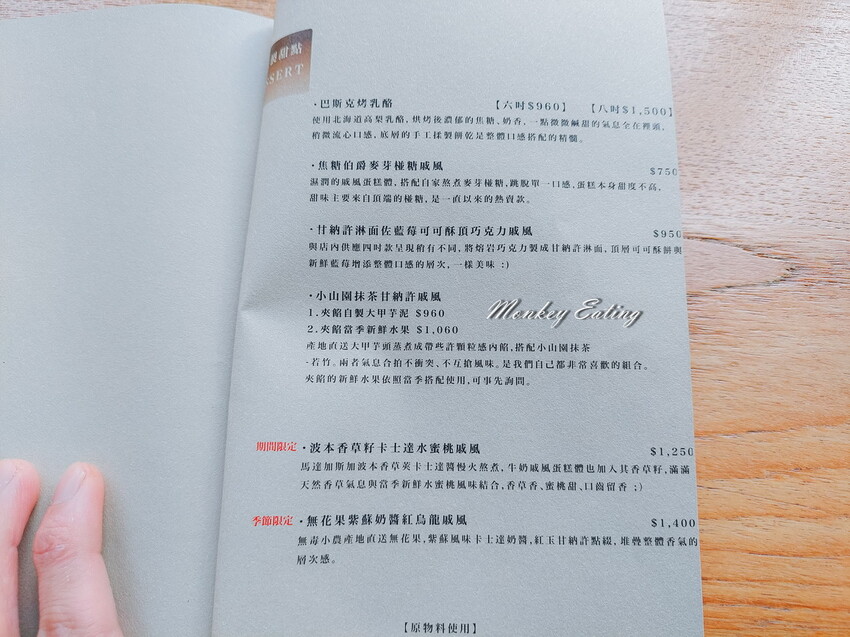 製甜點
SSERT
・巴斯克烤乳酪 【六吋$960】 【八吋$1,500】
使用北海道高梨乳酪,烘烤後濃郁的焦糖、奶香,一點微微鹹甜的氣息全在裡頭,
稍微流心口感,底層的手工揉製餅乾是整體口感搭配的精髓。
・焦糖伯爵麥芽椪糖戚風 $750
濕潤的戚風蛋糕體,搭配自家熬煮麥芽椪糖,跳脫單一口感,蛋糕本身甜度不高。
甜味主要來自頂端的椪糖,是一直以來的熱賣款。
・甘納許淋面佐藍莓可可酥頂巧克力戚風 $950
與店內供應四吋款呈現稍有不同,將熔岩巧克力製成甘納許淋面,頂層可可酥餅與
新鮮藍莓增添整體口感的層次,一樣美味 :)
・小山園抹茶甘納許戚風
1.夾餡自製大甲芋泥 $960
2.夾餡當季新鮮水果 $1,060
產地直送大甲芋頭蒸煮成帶些許顆粒感內餡,搭配小山園抹茶
-若竹。兩者氣息合拍不衝突、不互搶風味。是我們自己都非常喜歡的組合。
夾餡的新鮮水果依照當季搭配使用,可事先詢問。
Monkey Eating
期間限定・波本香草籽卡士達水蜜桃戚風 $1,250
馬達加斯加波本香草莢卡士達醬慢火熬煮,牛奶戚風蛋糕體也加入其香草籽,滿滿
天然香草氣息與當季新鮮水蜜桃風味結合,香草香、蜜桃甜、口齒留香 ;)
季節限定・無花果紫蘇奶醬紅烏龍戚風 $1,400
無毒小農產地直送無花果,紫蘇風味卡士達奶醬,紅玉甘納許點綴,堆疊整體香氣的
層次感。
【原物料使用】